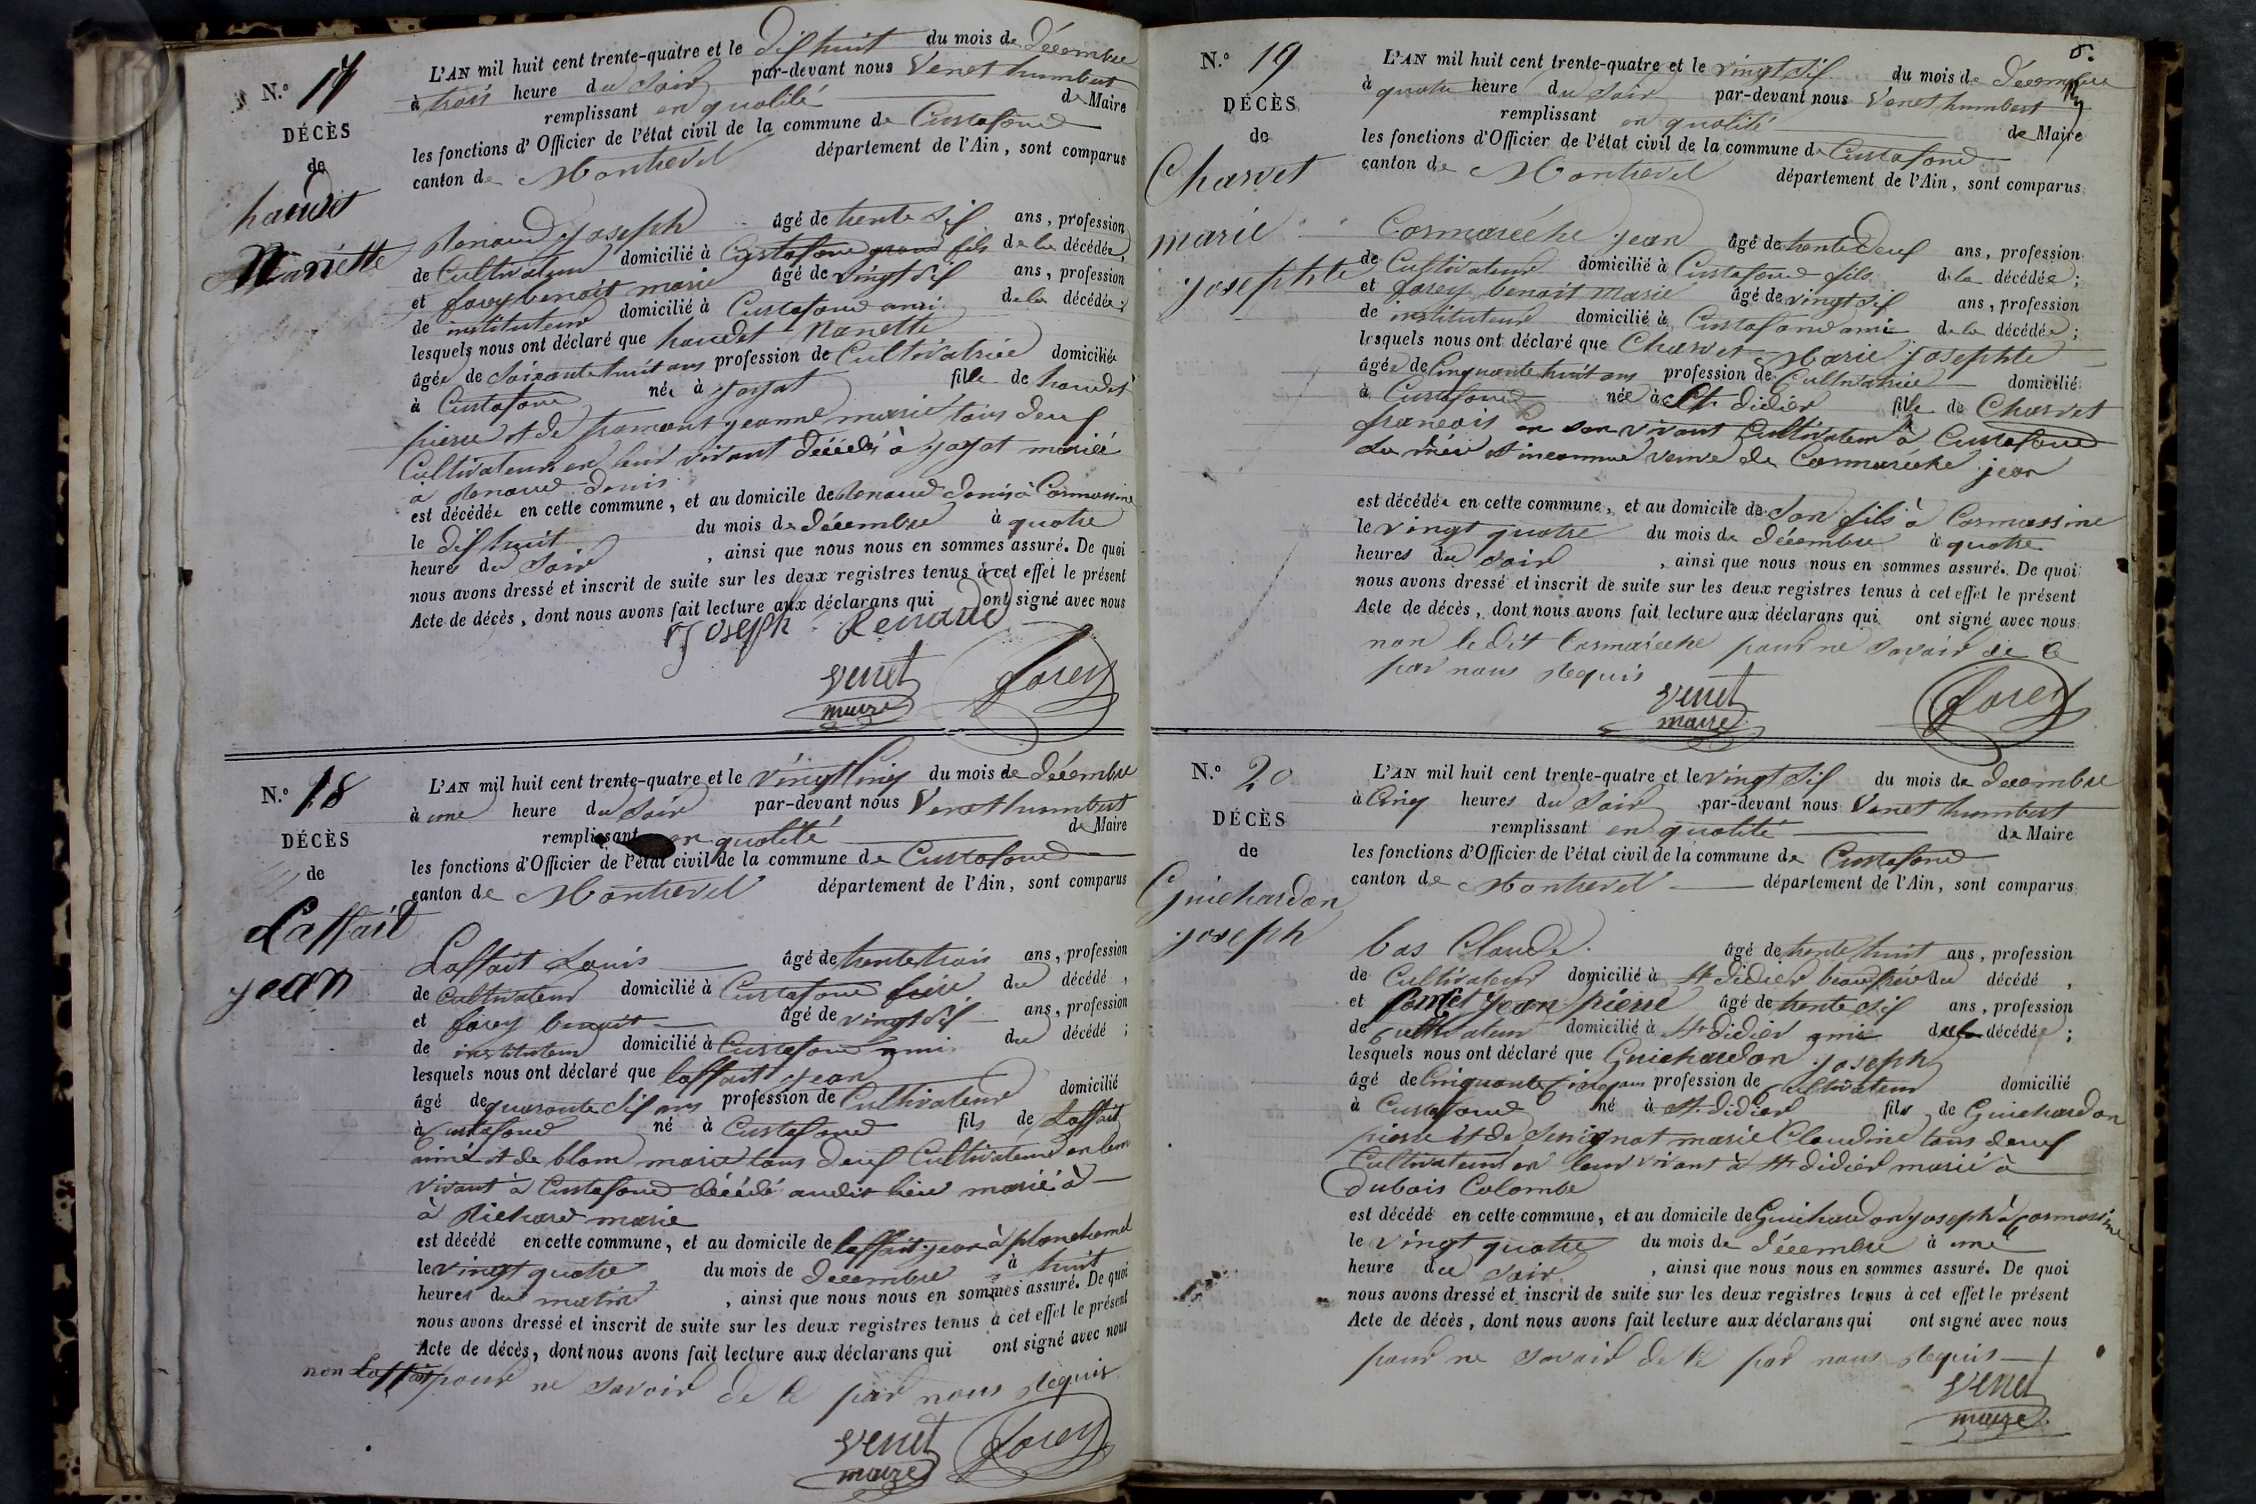 N.° 17
DÉCÈS
de
haudet
Nanette
L'AN mil huit cent trente-quatre et le dix huit du mois de décembre
à trois heure du Soir par-devant nous Venet humbert
remplissant en qualité de Maire
les fonctions d'Officier de l'état civil de la commune de Curtafond
canton de Montrevel département de l'Ain, sont comparus
Renaud Joseph âgé de trente six ans, profession
de Cultivateur domicilié à Curtafond fils de la décédée,
et forey benoit marie âgé de vingt six ans, profession
de instituteur domicilié à Curtafond ami de la décédée;
lesquels nous ont déclaré que haudet Nanette
âgée de Soixante huit ans profession de Cultivatrice domiciliée
à Curtafond née à jayat fille de haudet
pierre et de jeanne marie tous deux
Cultivateurs en leur vivant décédés à jayat mariée
à Renaud denis
est décédée en cette commune, et au domicile de Renaud denis à Cormassine
le dix huit du mois de décembre à quatre
heures du Soir, ainsi que nous nous en sommes assuré. De quoi
nous avons dressé et inscrit de suite sur les deux registres tenus à cet effet le présent
Acte de décès, dont nous avons fait lecture aux déclarans qui ont signé avec nous
Joseph Renaud
Venet forey
maire
N.° 18
DÉCÈS
de
Laffait
jean
L'AN mil huit cent trente-quatre et le vingt cinq du mois de décembre
à une heure du Soir par-devant nous Venet humbert
remplissant en qualité de Maire
les fonctions d'Officier de l'état civil de la commune de Curtafond
canton de Montrevel département de l'Ain, sont comparus
Laffait Louis âgé de trente trois ans, profession
de Cultivateur domicilié à Curtafond frère du décédé,
et forey benoit âgé de vingt six ans, profession
de instituteur domicilié à Curtafond ami du décédé;
lesquels nous ont déclaré que laffait jean
âgé de quarante six ans profession de Cultivateur domicilié
à Curtafond né à Curtafond fils de Laffait
aimé et de blanc marie tous deux Cultivateurs en leur
vivant à Curtafond décédé audit lieu marié à
à Richard marie
est décédé en cette commune, et au domicile de laffait jean à
le vingt quatre du mois de décembre à huit
heures du matin, ainsi que nous nous en sommes assuré. De quoi
nous avons dressé et inscrit de suite sur les deux registres tenus à cet effet le présent
Acte de décès, dont nous avons fait lecture aux déclarans qui ont signé avec nous
non Laffait pour ne Savoir de ce par nous Requis
Venet forey
maire
N.° 19
DÉCÈS
de
Charvet
marie
josephte
L'AN mil huit cent trente-quatre et le vingt six du mois de décembre
à quatre heure du Soir par-devant nous Venet humbert
remplissant en qualité de Maire
les fonctions d'Officier de l'état civil de la commune de Curtafond
canton de Montrevel département de l'Ain, sont comparus
Cormarèche jean âgé de trente deux ans, profession
de Cultivateur domicilié à Curtafond fils de la décédée;
et forey benoit marie âgé de vingt six ans, profession
de instituteur domicilié à Curtafond ami de la décédée;
lesquels nous ont déclaré que Charvet Marie josephte
âgée de Cinquante huit ans profession de Cultivatrice domiciliée
à Curtafond née à St. didier fille de Charvet
françois en son vivant Cultivateur à Curtafond
La mère inconnue veuve de Cormarèche jean
est décédée en cette commune, et au domicile de Son fils à Cormassine
le vingt quatre du mois de décembre à quatre
heures du Soir, ainsi que nous nous en sommes assuré. De quoi
nous avons dressé et inscrit de suite sur les deux registres tenus à cet effet le présent
Acte de décès, dont nous avons fait lecture aux déclarans qui ont signé avec nous
non le dit Cormarèche pour ne Savoir de ce
par nous Requis
Venet forey
maire
N.° 20
DÉCÈS
de
Guichardon
joseph
L'AN mil huit cent trente-quatre et le vingt six du mois de décembre
à Cinq heures du Soir par-devant nous Venet humbert
remplissant en qualité de Maire
les fonctions d'Officier de l'état civil de la commune de Curtafond
canton de Montrevel département de l'Ain, sont comparus
bas Claude âgé de trente huit ans, profession
de Cultivateur domicilié à St didier beaufrère du décédé,
et jean pierre âgé de trente six ans, profession
de Cultivateur domicilié à St didier ami de la décédée;
lesquels nous ont déclaré que Guichardon joseph
âgé de Cinquante Cinq ans profession de Cultivateur domicilié
à Curtafond né à St didier fils de Guichardon
pierre et de marie Claudine tous deux
Cultivateurs en leur vivant à St didier marié à
dubois Colombe
est décédé en cette commune, et au domicile de Guichardon joseph à Cormassine
le vingt quatre du mois de décembre à une
heure du Soir, ainsi que nous nous en sommes assuré. De quoi
nous avons dressé et inscrit de suite sur les deux registres tenus à cet effet le présent
Acte de décès, dont nous avons fait lecture aux déclarans qui ont signé avec nous
pour ne Savoir de ce par nous Requis
Venet
maire